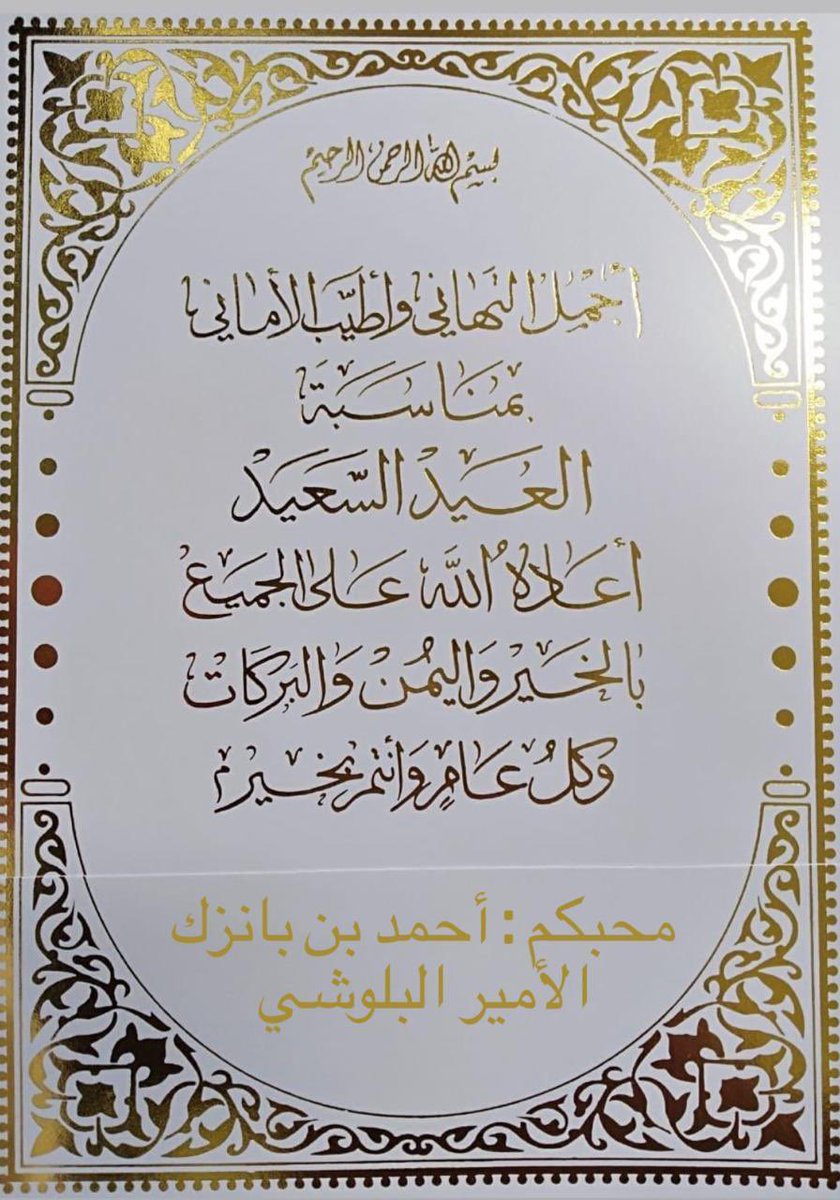 بسم الله الرحمن الرحيم
أجمل التهاني وأطيَب الأماني
بمنَاسَبَة
العيَدْ السَّعَيدْ
أعَادهُ اللَّه عَلى الجميَع
بالخيَر وَاليُمنْ وَالبَركَاتْ
وَكلُ عَامٍ وَأنتم بخيَر
محبكم : أحمد بن بانزك
الأمير البلوشي